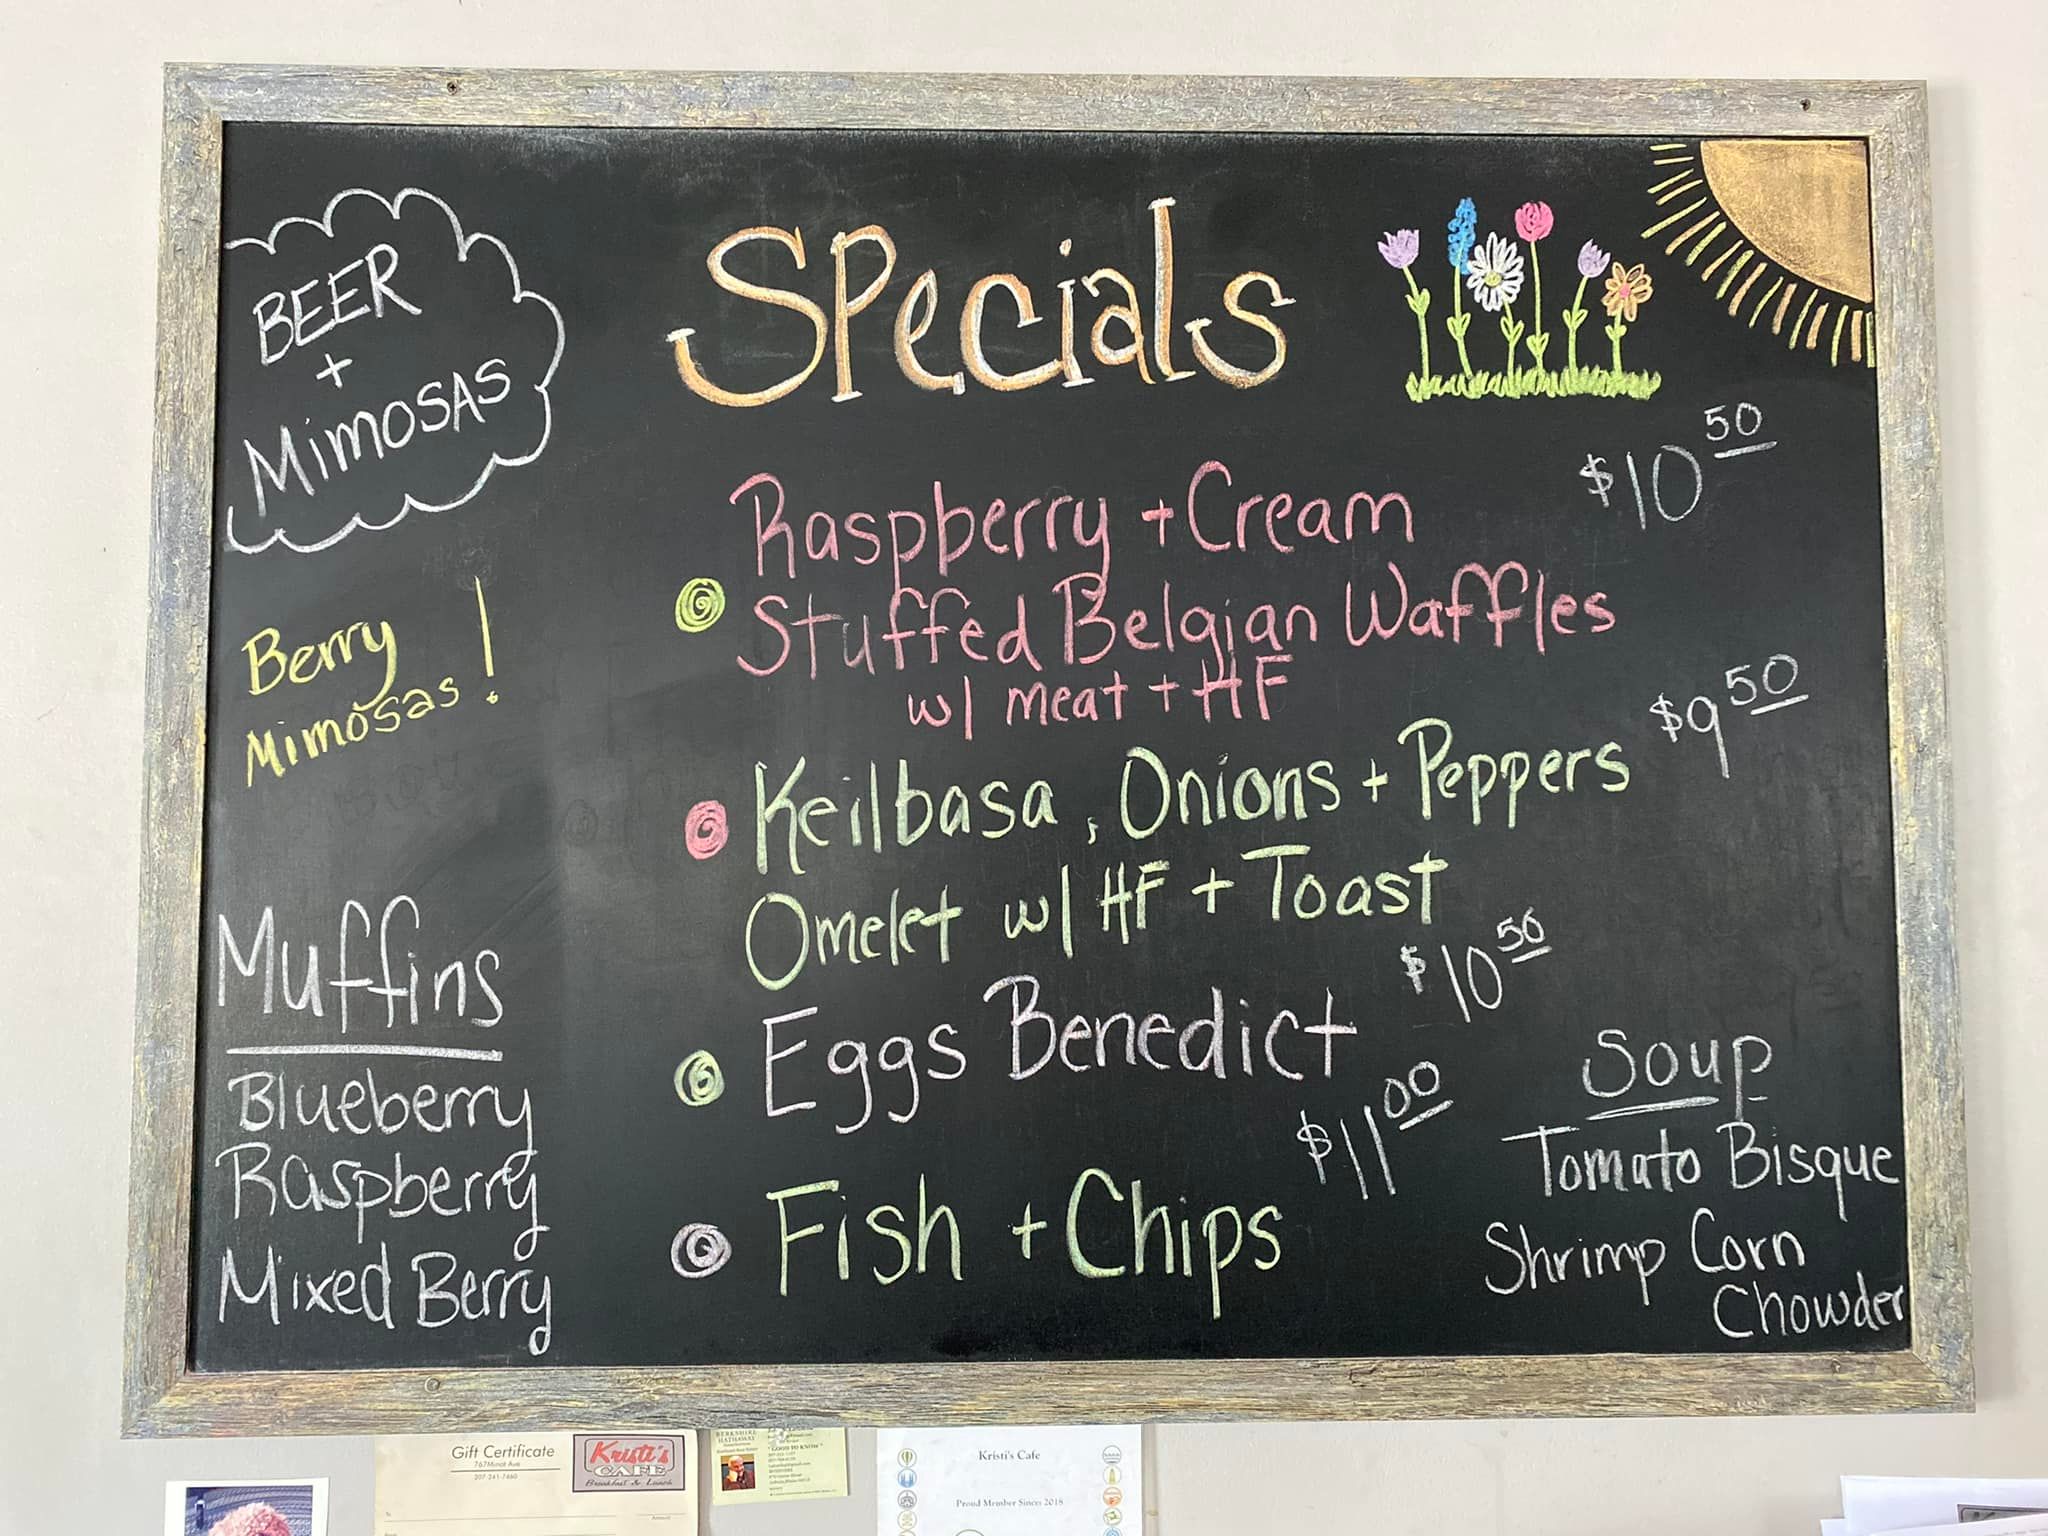 BEER
+
MimosAS
Berry
Mimosas!
Muffins
Blueberry
Raspberry
Mixed Berry
Specials
Raspberry + Cream
Stuffed Belgian Waffles
w/ meat + HF
$10 50
Keilbasa, Onions + Peppers
Omelet w/ HF + Toast
$9 50
Eggs Benedict
$10 50
Fish + Chips
$11 00
Soup
Tomato Bisque
Shrimp Corn
Chowder
Gift Certificate
767 Minot Ave
207-241-7460
Kristi's
CAFE
Breakfast & Lunch
BERKSHIRE
HATHAWAY
Kristi's Cafe
Proud Member Since: 2018